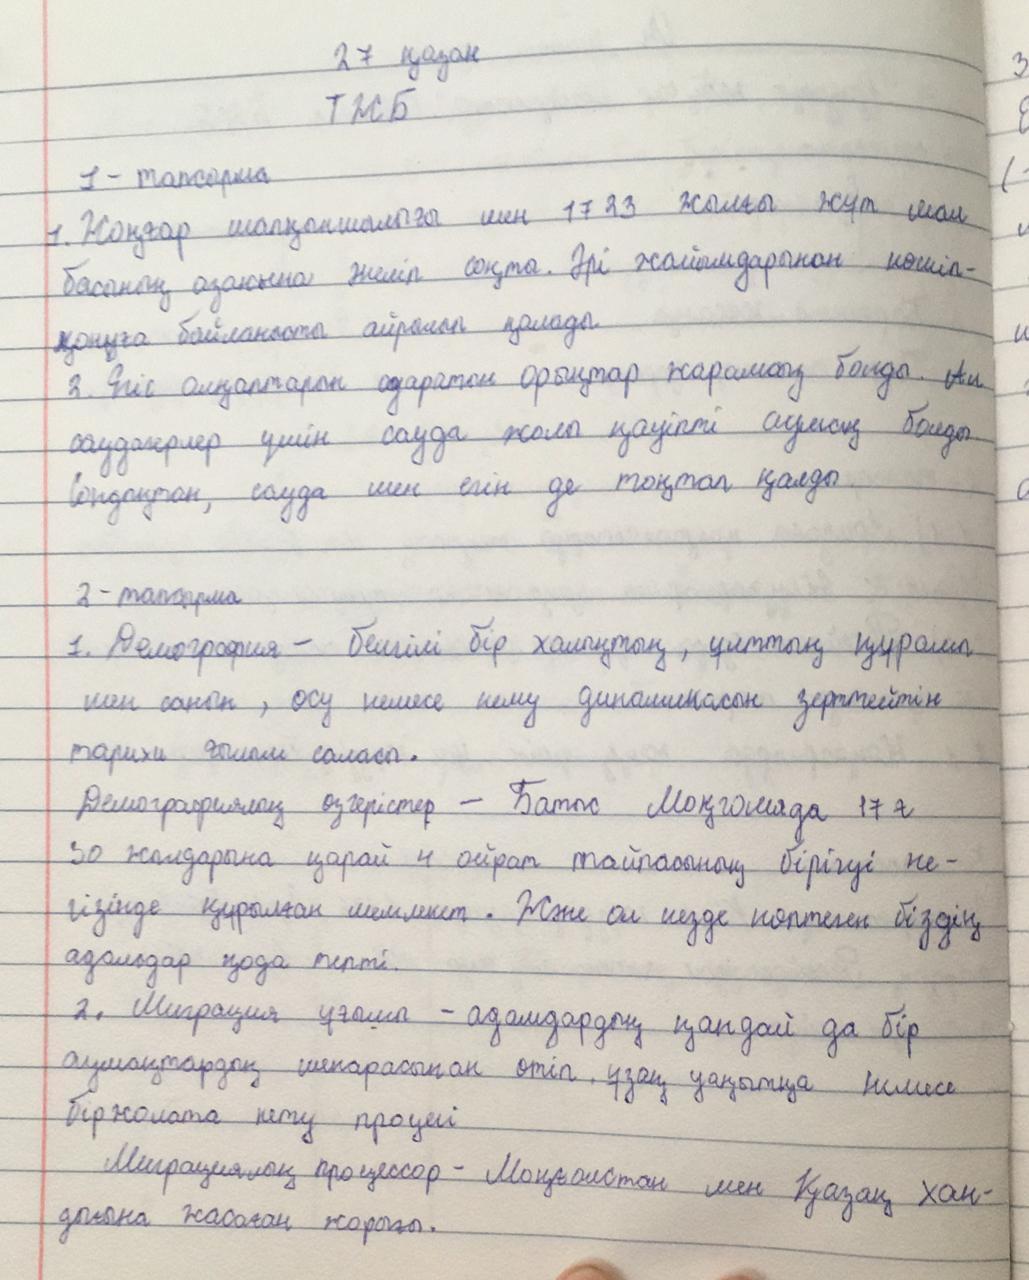 27 қазан
ТЖБ
1 - тапсырма
1. Жоңғар шапқыншылығы мен 1723 жылғы жұт мал
басының азаюына әкеліп соқты. Әрі жайылымдарынан көшіп-
қонуға байланысты айрылып қалады
2. Егіс алқаптарын суаратын арықтар жарамсыз болды. Ал
саудагерлер үшін сауда жолы қауіпті аумақ болды
Сондықтан, сауда мен егін де тоқтап қалды
2 - тапсырма
1. Демография – белгілі бір халықтың, ұлттың құрамы
мен санын, өсу немесе кему динамикасын зерттейтін
тарихи ғылым саласы.
Демографиялық өзгерістер – Батыс Моңғолияда 17 ғ
30 жылдарына қарай 4 ойрат тайпасының бірігуі не-
гізінде құрылған мемлекет. Және ол кезде көптеген біздің
адамдар қода тепті.
2. Миграция ұғымы - адамдардың қандай да бір
аумақтардың шекарасынан өтіп, ұзақ уақытқа немесе
біржолата кету процесі
Миграциялық процессор - Моңғолстан мен Қазақ хан-
дығына жасаған жорығы.